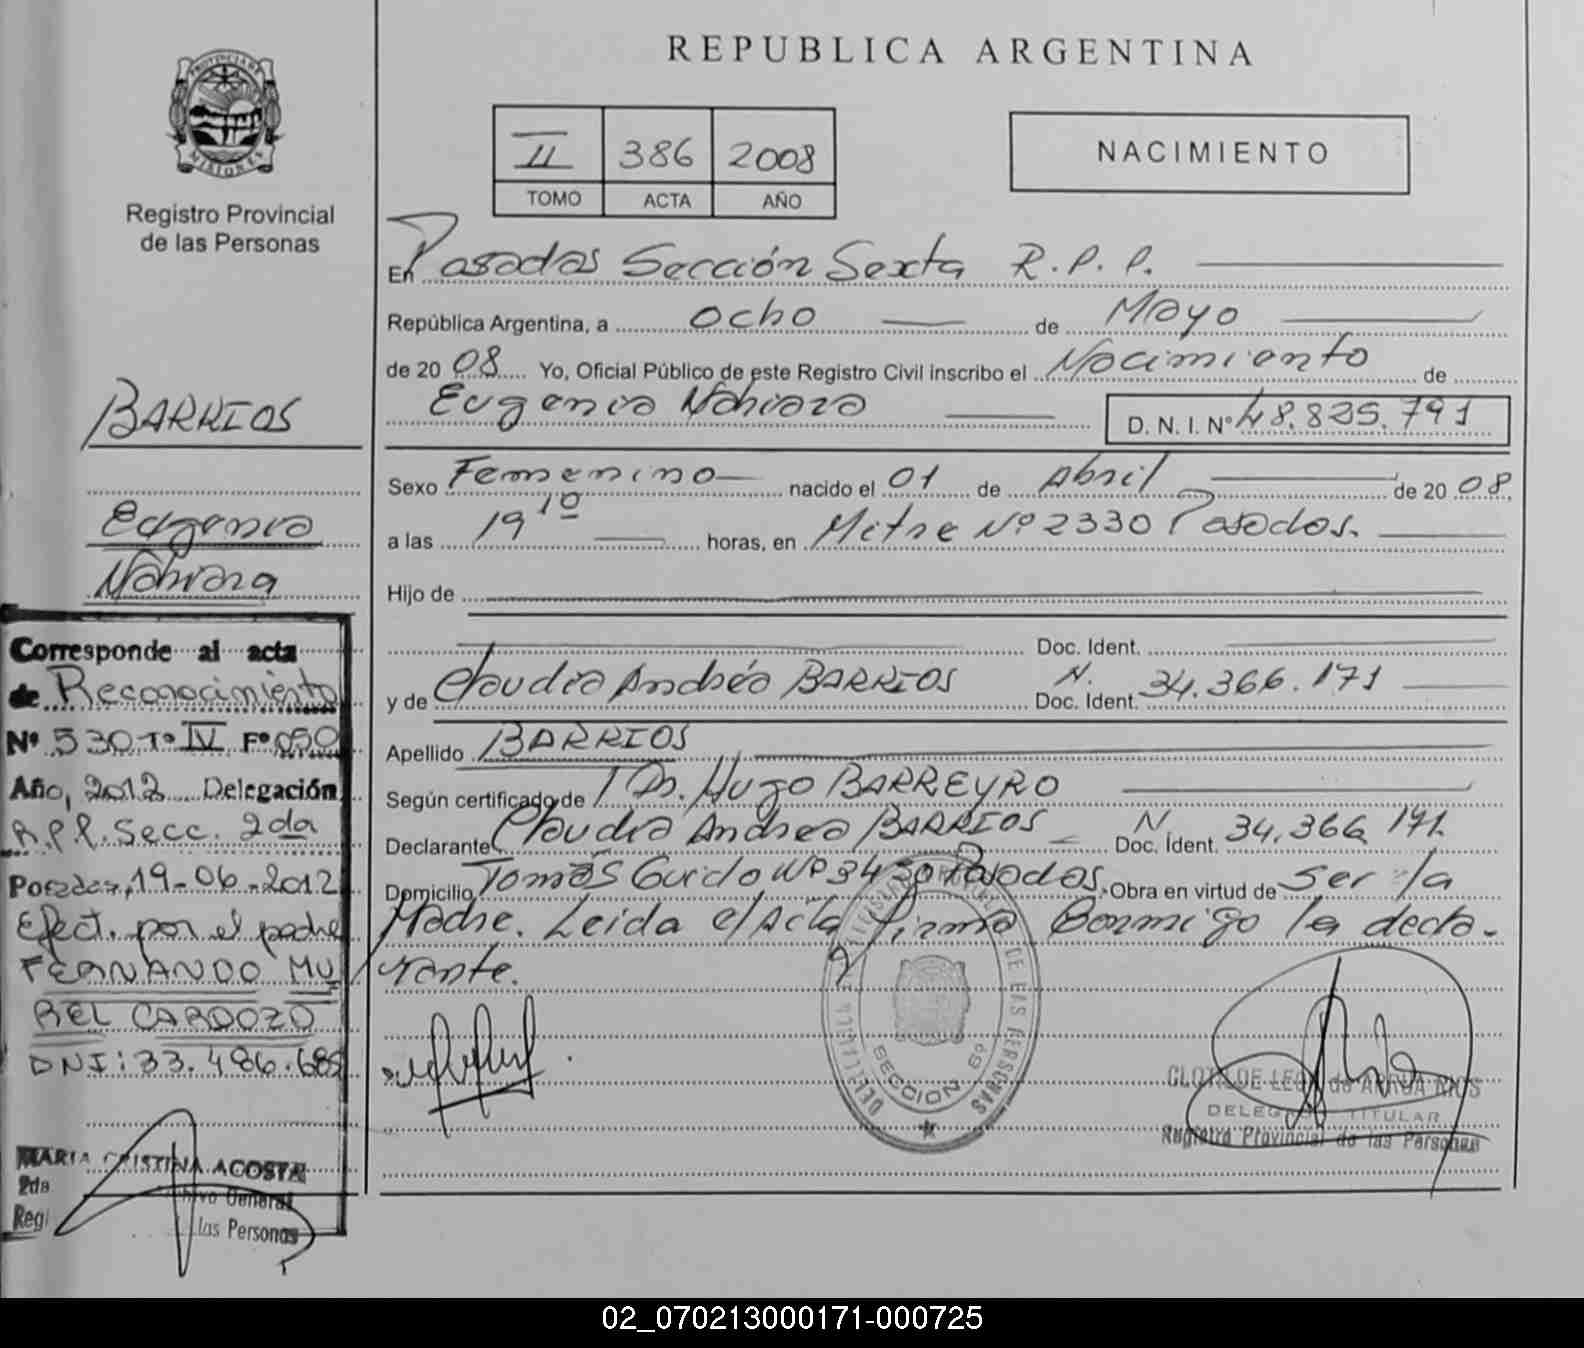 PROVINCIA DE
MISIONES
Registro Provincial
de las Personas
REPUBLICA ARGENTINA
II 386 2008
TOMO ACTA AÑO
NACIMIENTO
En Posadas Sección Sexta R.P.P.
República Argentina, a ocho de Mayo
de 2008 Yo, Oficial Público de este Registro Civil inscribo el Nacimiento de
Eugenia Nahiara D. N. I. Nº 48.825.791
Sexo Femenino nacido el 01 de Abril de 2008.
a las 19 10 horas, en Mitre Nº 2330 Posadas.
Hijo de
Doc. Ident.
y de Claudia Andréa BARRIOS Doc. Ident. N. 34.366.171
Apellido BARRIOS
Según certificado de Dr. Hugo BARREYRO
Declarante Claudia Andrea BARRIOS Doc. Ident. N 34.366.171.
Domicilio Tomás Guido Nº 3430 Posadas. Obra en virtud de Ser la
Madre. Leida el Acta firma Conmigo la decla-
rante.
BARRIOS
Eugenia
Nahiara
Corresponde al acta
de Reconocimiento
Nº 530 Tº IV Fº 050
Año, 2012 Delegación
R.P.P. Secc. 2da
Posadas, 19-06-2012
Efect. por el padre
FERNANDO MU
REL CARDOZO
DNI: 33.486.689
MARIA CRISTINA ACOSTA
2da
General
las Personas
DE LAS PERSONAS
SECCION 6º
DELEGADA TITULAR
Registro Provincial de las Personas
02_070213000171-000725